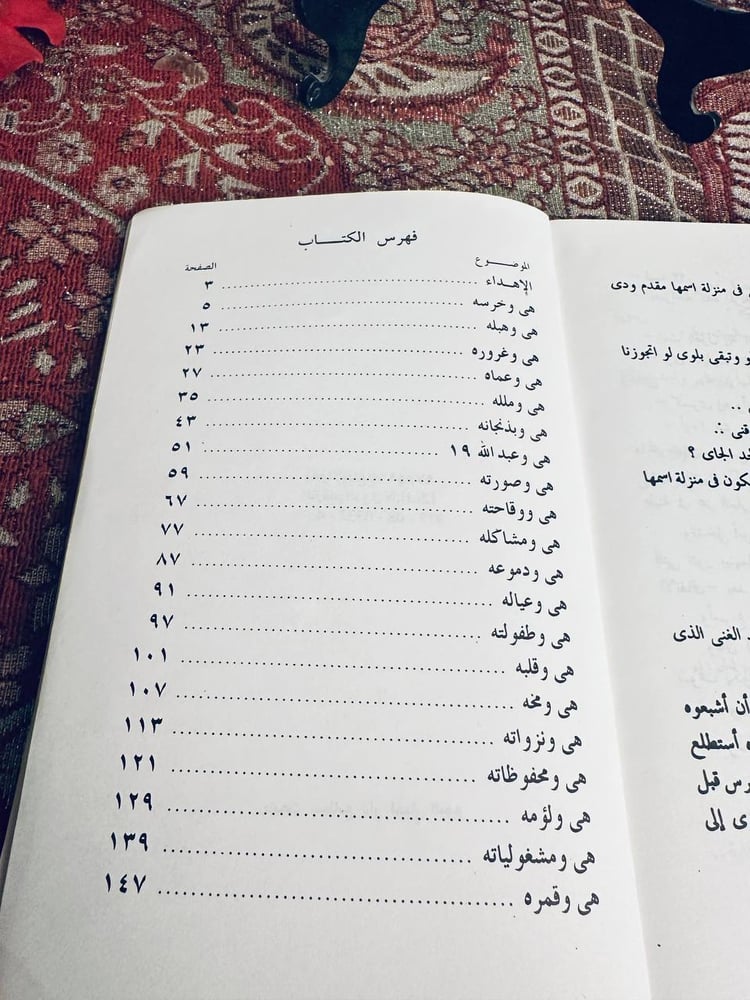 فهرس الكتـــــاب
الموضــــوع الصفحة
الإهـداء ........ ٣
هى وخرسه ........ ٥
هى وهبله ........ ١٣
هى وغروره ........ ٢٣
هى وعماه ........ ٢٧
هى وملله ........ ٣٥
هى وبذنجانه ........ ٤٣
هى وعبد الله ١٩ ........ ٥١
هى وصورته ........ ٥٩
هى ووقاحته ........ ٦٧
هى ومشاكله ........ ٧٧
هى ودموعه ........ ٨٧
هى وعياله ........ ٩١
هى وطفولته ........ ٩٧
هى وقلبه ........ ١٠١
هى ومخه ........ ١٠٧
هى ونزواته ........ ١١٣
هى ومحفوظاته ........ ١٢١
هى ولؤمه ........ ١٢٩
هى ومشغولياته ........ ١٣٩
هى وقمره ........ ١٤٧
فى منزلة اسمها مقدم ودى
وتبقى بلوى لو اتجوزنا
الجاى ؟
فى منزلة اسمها
الغنى الذى
أن أشبعوه
أستطلع
قبل
إلى